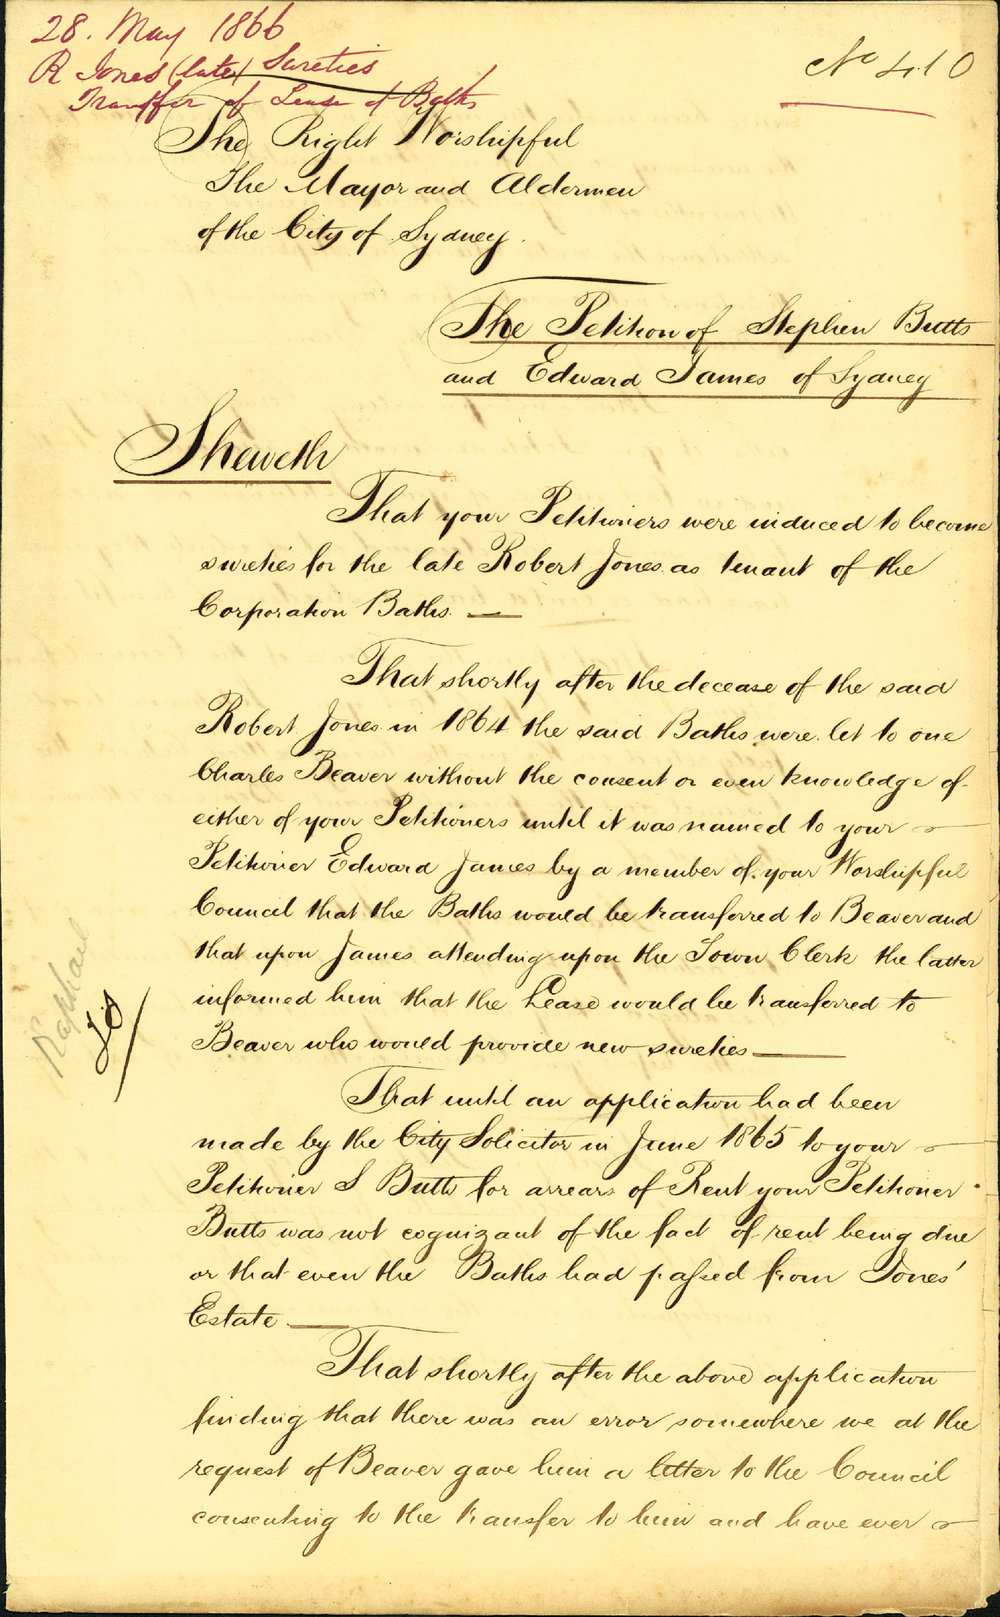 28. May 1866
No 410
R Jones (late) Sureties
Transfer of Lease of Baths
The Right Worshipful
The Mayor and Aldermen
of the City of Sydney.
The Petition of Stephen Butts
and Edward James of Sydney
Sheweth
That your Petitioners were induced to become
sureties for the late Robert Jones as tenant of the
Corporation Baths. —
That shortly after the decease of the said
Robert Jones in 1864 the said Baths were let to one
Charles Beaver without the consent or even knowledge of
either of your Petitioners until it was named to your
Petitioner Edward James by a member of your Worshipful
Council that the Baths would be transferred to Beaver and
that upon James attending upon the Town Clerk the latter
informed him that the Lease would be transferred to
Beaver who would provide new sureties —
Raphael
That until an application had been
made by the City Solicitor in June 1865 to your
Petitioner S Butts for arrears of Rent your Petitioner
Butts was not cognizant of the fact of rent being due
or that even the Baths had passed from Jones'
Estate. —
That shortly after the above application
finding that there was an error somewhere we at the
request of Beaver gave him a letter to the Council
consenting to the transfer to him and have ever